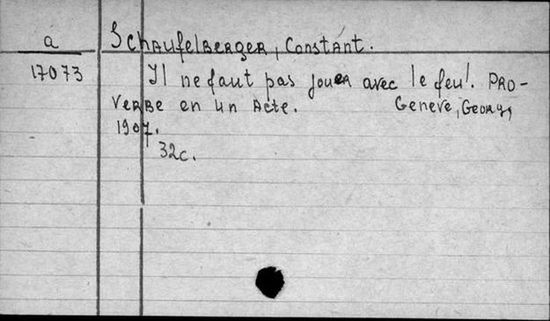 a
Schaufelberger, Constant.
17073
Il ne faut pas jouer avec le feu!. Pro-
verbe en un acte. Geneve, Georg,
1907.
32c.